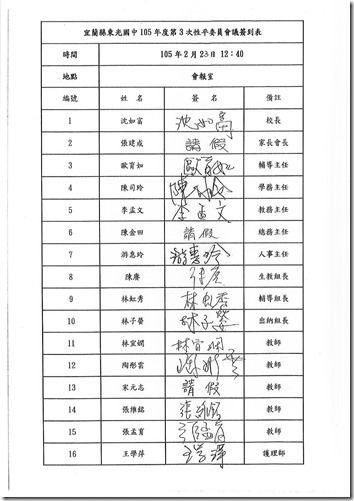 宜蘭縣東光國中 105 年度第 3 次性平委員會議簽到表
時間 105 年 2 月 23 日 12:40
地點 會報室
編號 姓 名 簽 名 備註
1 沈如富 沈如富 校長
2 張建成 請假 家長會長
3 歐育如 歐育如 輔導主任
4 陳司玲 陳司玲 學務主任
5 李孟文 李孟文 教務主任
6 陳金田 請假 總務主任
7 游惠玲 游惠玲 人事主任
8 陳賡 生教組長
9 林虹秀 林虹秀 輔導組長
10 林子馨 林子馨 出納組長
11 林宜嫻 林宜嫻 教師
12 陶彤雲 教師
13 宋元志 請假 教師
14 張維銘 張維銘 教師
15 張孟育 教師
16 王學萍 王學萍 護理師